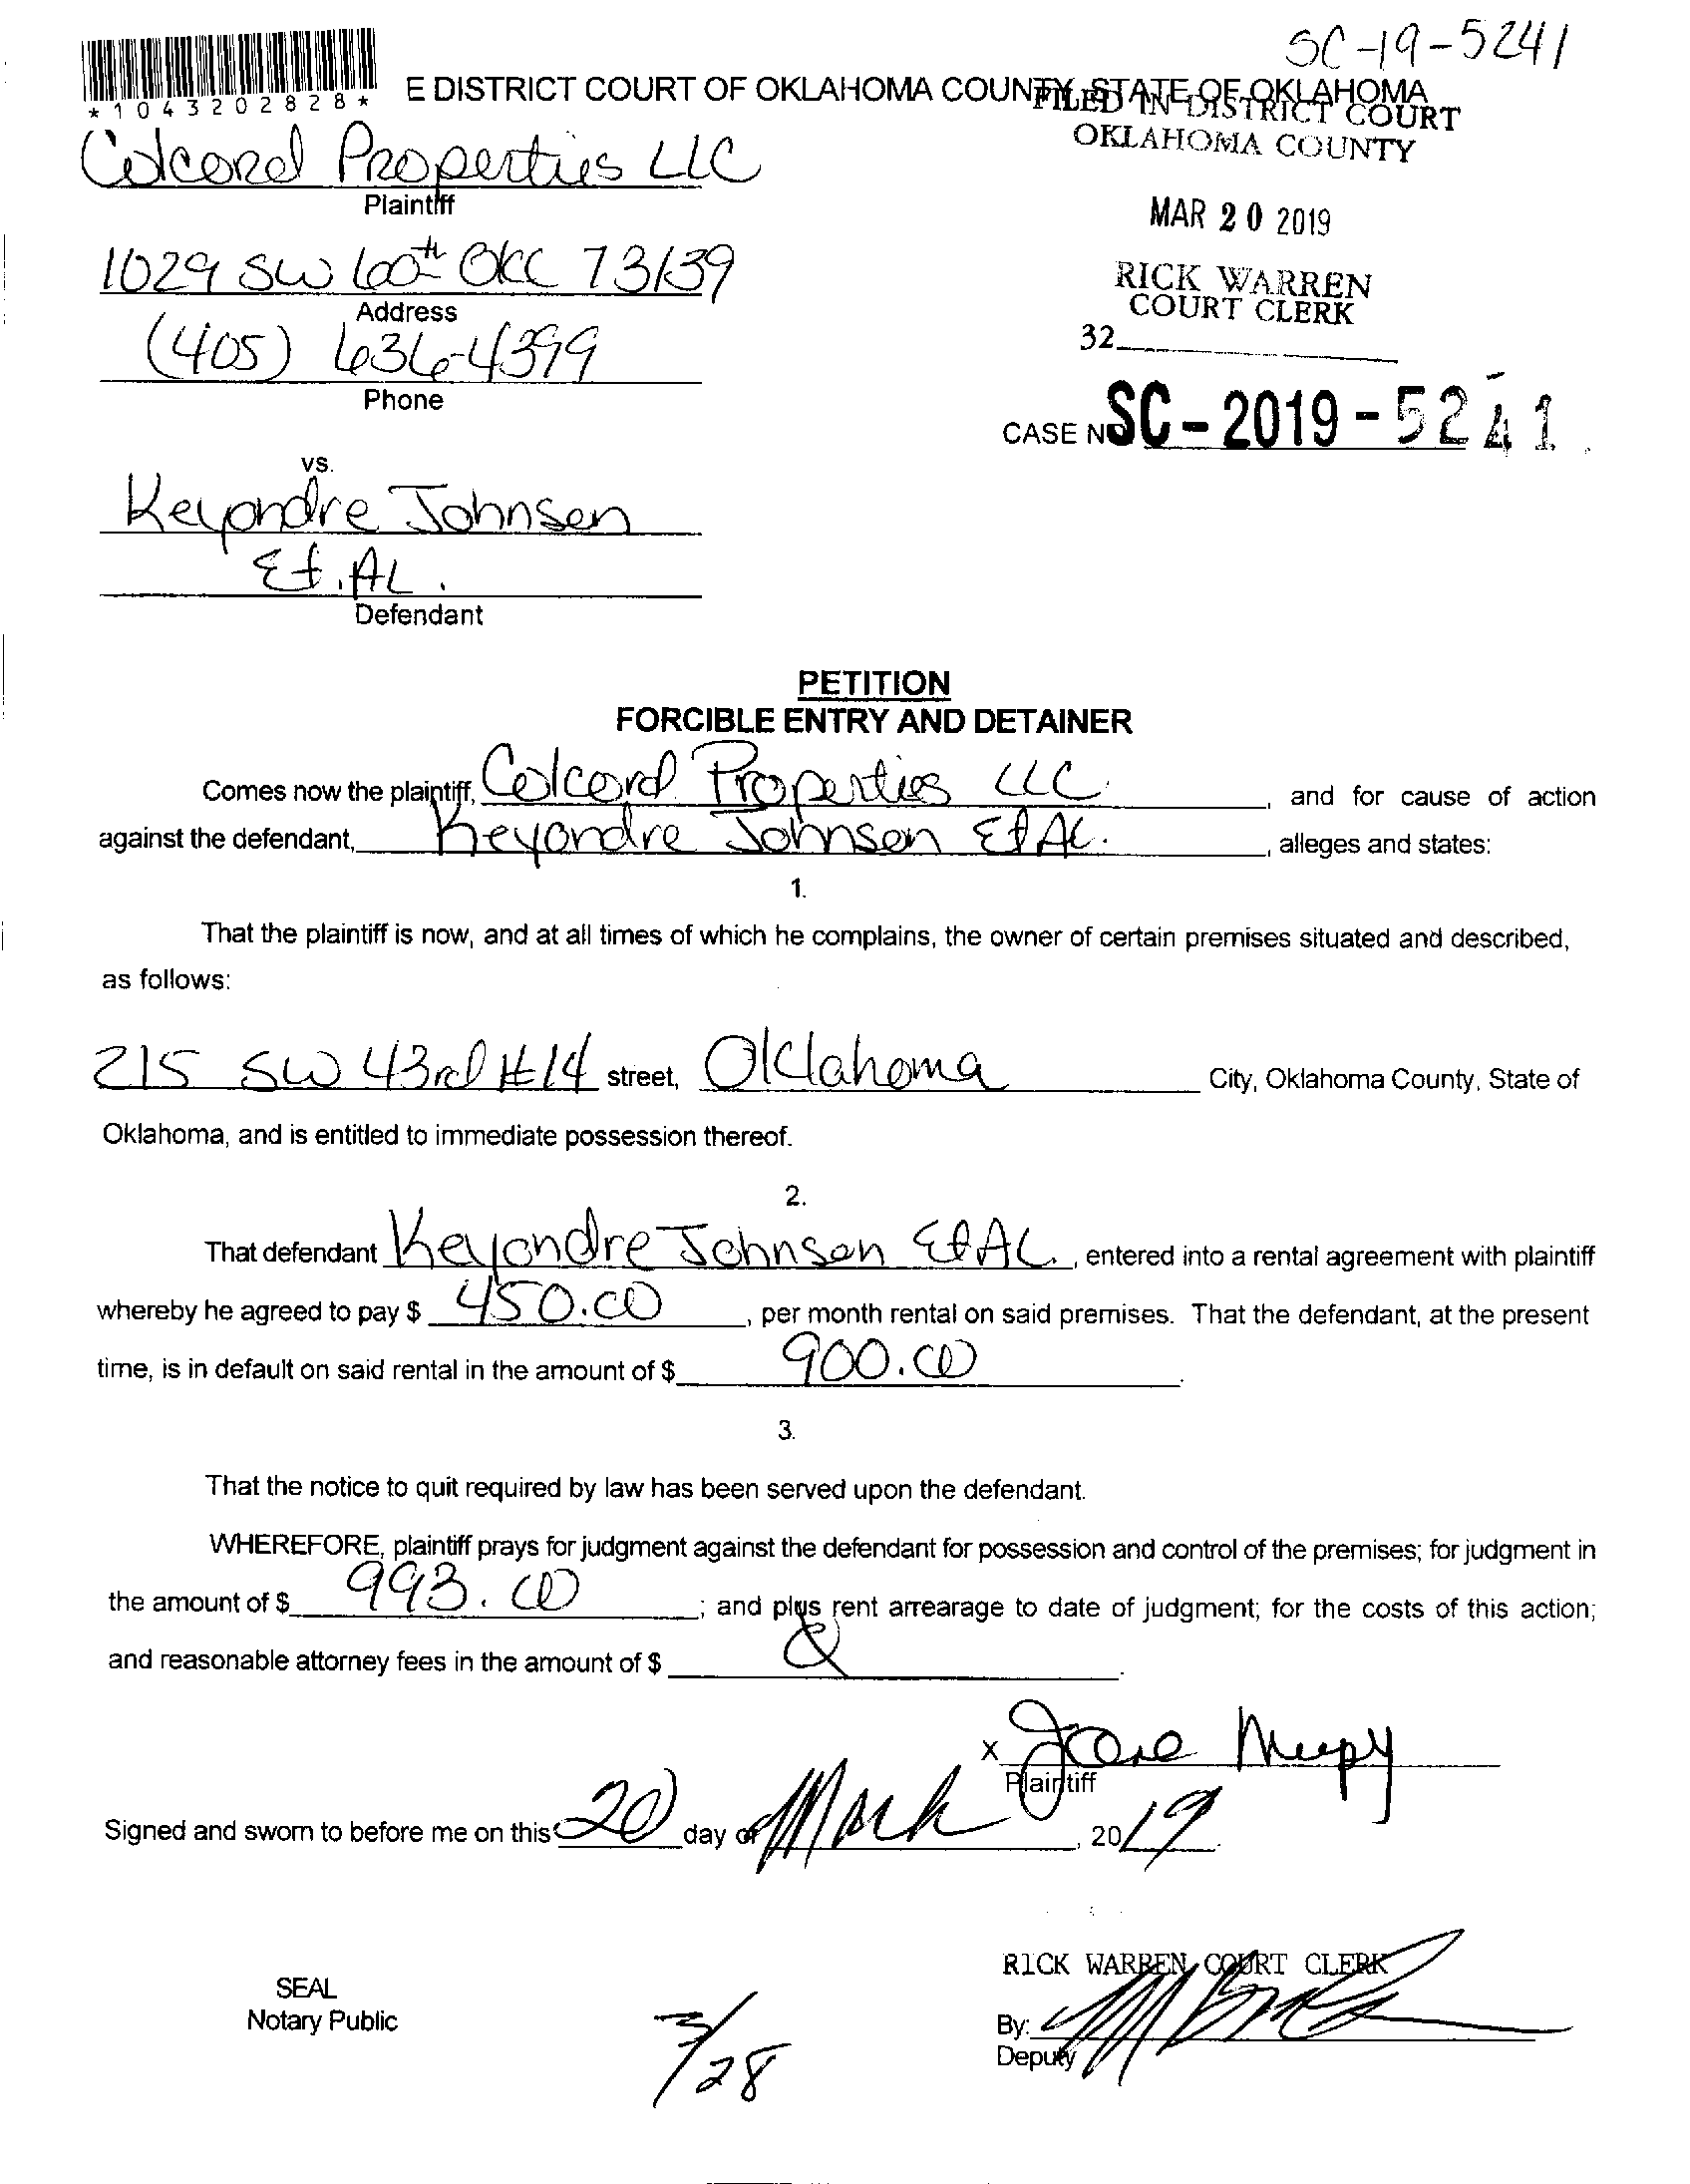 SC-19-5241
*1043202828*
E DISTRICT COURT OF OKLAHOMA COUNTY, STATE OF OKLAHOMA
FILED IN DISTRICT COURT
OKLAHOMA COUNTY
Colcord Properties LLC
Plaintiff
MAR 20 2019
1029 SW 60th OKC 73139
Address
RICK WARREN
COURT CLERK
(405) 636-4399
32
Phone
CASE NO SC-2019-5241
vs.
Keyondre Johnson
Et. AL.
Defendant
PETITION
FORCIBLE ENTRY AND DETAINER
Comes now the plaintiff, Colcord Properties LLC, and for cause of action
against the defendant, Keyondre Johnson Et AL., alleges and states:
1.
That the plaintiff is now, and at all times of which he complains, the owner of certain premises situated and described,
as follows:
215 SW 43rd #14 street, Oklahoma City, Oklahoma County, State of
Oklahoma, and is entitled to immediate possession thereof.
2.
That defendant Keyondre Johnson Et AL., entered into a rental agreement with plaintiff
whereby he agreed to pay $ 450.00, per month rental on said premises. That the defendant, at the present
time, is in default on said rental in the amount of $ 900.00.
3.
That the notice to quit required by law has been served upon the defendant.
WHEREFORE, plaintiff prays for judgment against the defendant for possession and control of the premises; for judgment in
the amount of $ 993.00; and plus rent arrearage to date of judgment; for the costs of this action;
and reasonable attorney fees in the amount of $
x
Plaintiff
Signed and sworn to before me on this 20 day of March, 2019.
RICK WARREN, COURT CLERK
SEAL
Notary Public
By:
Deputy
3/28